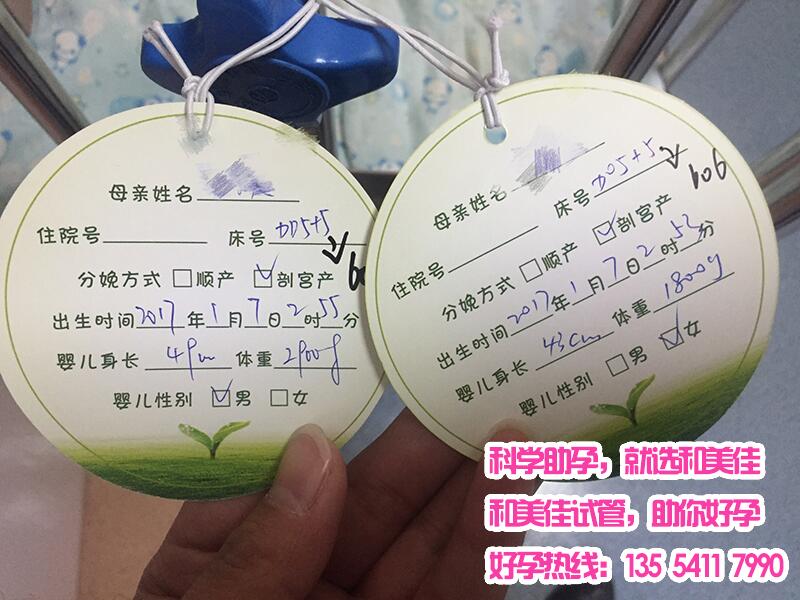 母亲姓名
住院号 床号 DD5+5
606
分娩方式 □顺产 ☑剖宫产
出生时间 2017 年 1 月 7 日 2 时 55 分
婴儿身长 49cm 体重 2900g
婴儿性别 ☑男 □女
母亲姓名
住院号 床号 DD5+5
606
分娩方式 □顺产 ☑剖宫产
出生时间 2017 年 1 月 7 日 2 时 52 分
婴儿身长 43cm 体重 1800g
婴儿性别 □男 ☑女
科学助孕，就选和美佳
和美佳试管，助你好孕
好孕热线：135 5411 7990